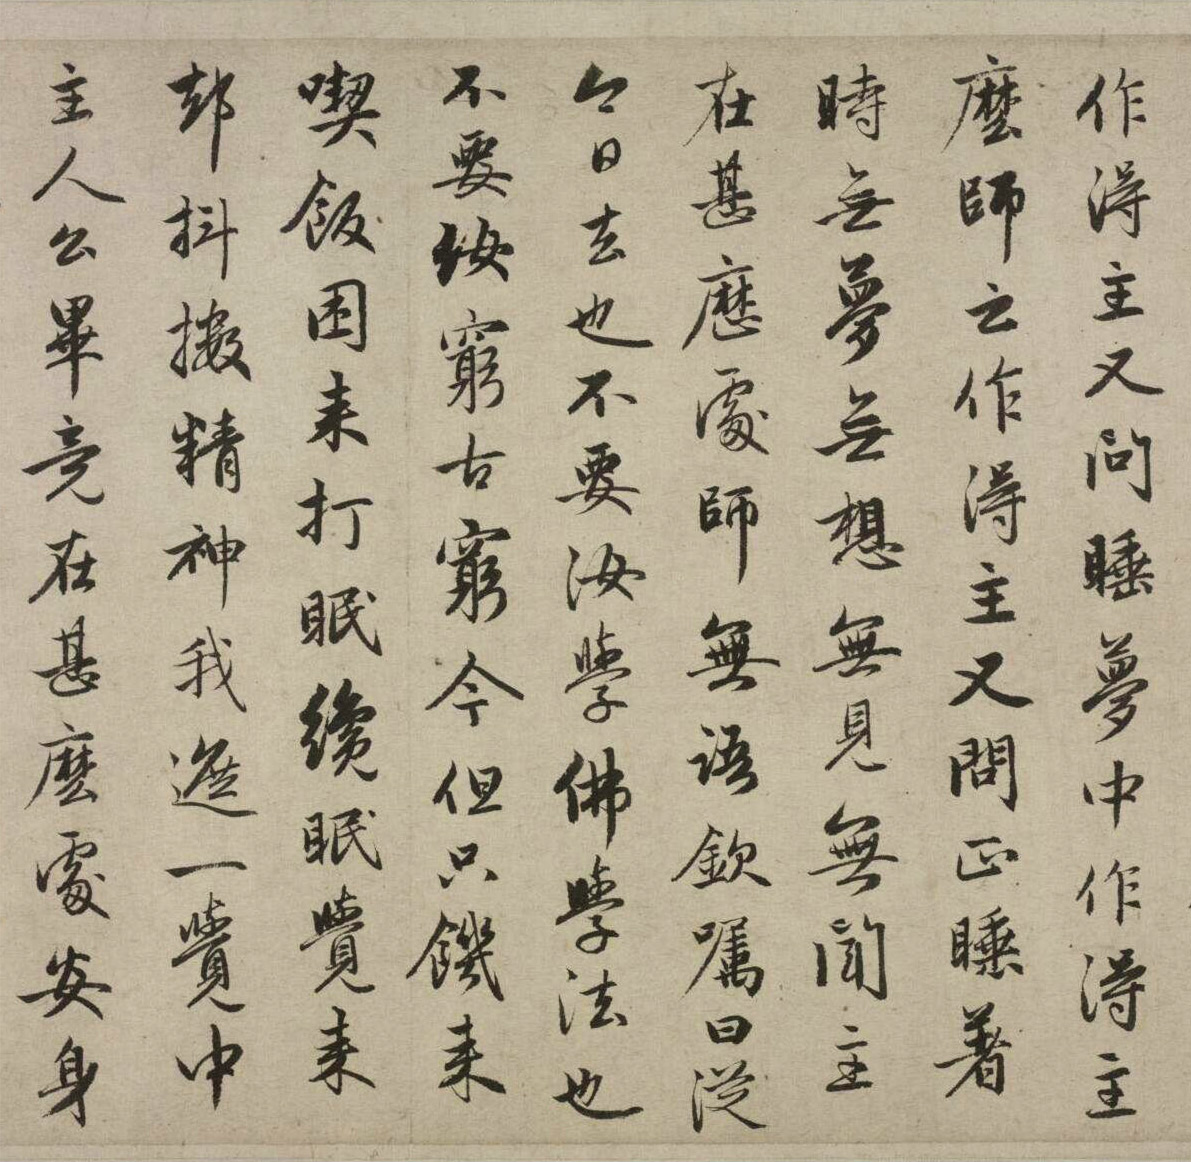 作得主又問睡夢中作得主
麼師云作得主又問正睡著
時無夢無想無見無聞主
在甚麼處師無語欽嘱曰從
今日去也不要汝學佛學法也
不要汝窮古窮今但只饑来
喫飯困来打眠纔眠覺来
却抖擻精神我遮一覺中
主人公畢竟在甚麼處安身